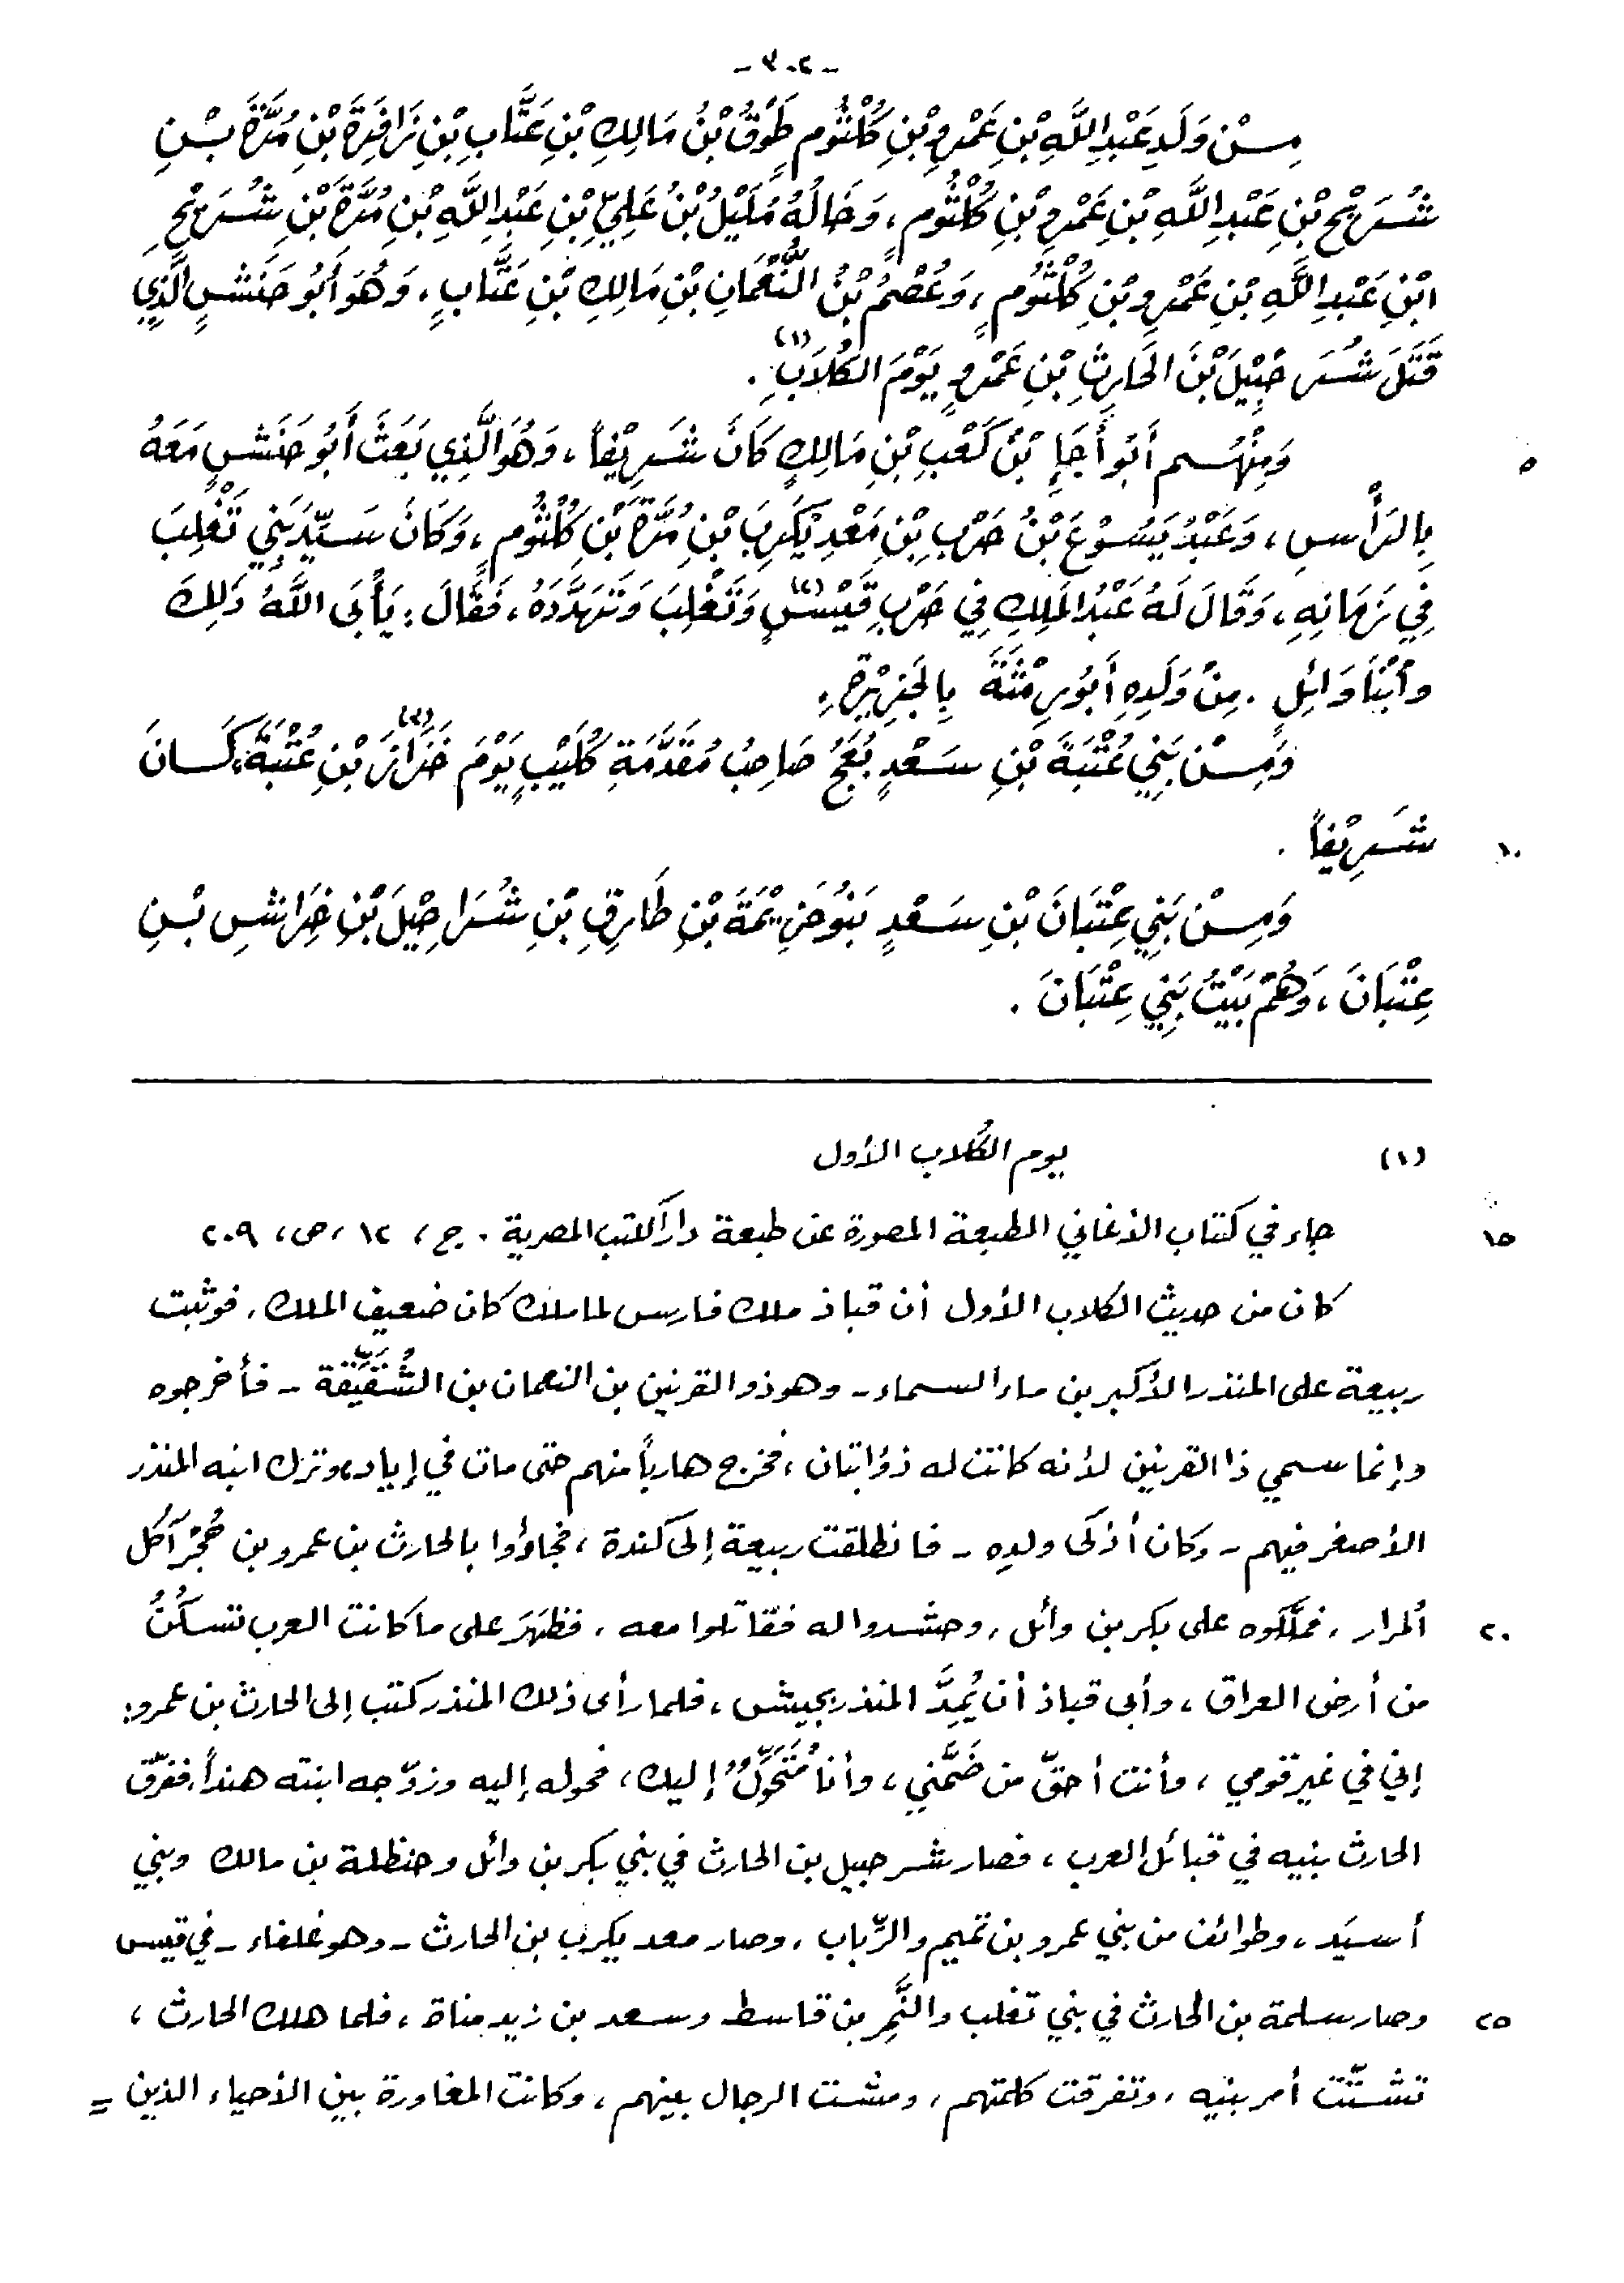 - ٣٠٢ -
مِنْ وَلَدِ عَبْدِ اللَّهِ بْنِ عَمْرِو بْنِ كُلْثُومٍ طَوْقُ بْنُ مَالِكِ بْنِ عَتَّابِ بْنِ زَافِرَةَ بْنِ مُرَّةَ بْنِ
شُرَيْحِ بْنِ عَبْدِ اللَّهِ بْنِ عَمْرِو بْنِ كُلْثُومٍ، وَخَالُهُ مُلَيْلُ بْنُ عَلِيِّ بْنِ عَبْدِ اللَّهِ بْنِ مُرَّةَ بْنِ شُرَيْحِ
ابْنِ عَبْدِ اللَّهِ بْنِ عَمْرِو بْنِ كُلْثُومٍ، وَعُصْمُ بْنُ النُّعْمَانِ بْنِ مَالِكِ بْنِ عَتَّابٍ، وَهُوَ أَبُو حَنَشٍ الَّذِي
قَتَلَ شُرَحْبِيْلَ بْنَ الحَارِثِ بْنِ عَمْرٍو يَوْمَ الكُلَابِ (١).
وَمِنْهُم أَبُو أَجَإِ بْنُ كَعْبِ بْنِ مَالِكٍ كَانَ شَرِيْفاً، وَهُوَ الَّذِي بَعَثَ أَبُو حَنَشٍ مَعَهُ ٥
بِالرَأْسِ، وَعَبْدُ يَسُوْعَ بْنُ حَرْبِ بْنِ مَعْدِ يْكَرِبَ بْنِ مُرَّةَ بْنِ كُلْثُومٍ، وَكَانَ سَيِّدَ بَنِي تَغْلِبَ
فِي زَمَانِهِ، وَقَالَ لَهُ عَبْدُ المَلِكِ فِي حَرْبِ قَيْسٍ (٢) وَتَغْلِبَ وَتَهَدَّدَهُ، فَقَالَ: يَأْبَى اللَّهُ ذَلِكَ
وابْنَا وَائِلٍ. مِنْ وَلَدِهِ أَبُو رِمْثَةَ بِالجَزِيْرَةِ.
وَمِنْ بَنِي عُتْبَةَ بْنِ سَعْدٍ بُعَجُ صَاحِبُ مُقَدَّمَةِ كُلَيْبٍ يَوْمَ خَزَازَ (٣) بْنِ عُتْبَةَ، كَانَ
شَرِيْفاً. ١٠
وَمِنْ بَنِي عِتْبَانَ بْنِ سَعْدٍ بَنُو خَزِيْمَةَ بْنِ طَارِقِ بْنِ شُرَاحِيْلَ بْنِ خِرَاشِ بْنِ
عِتْبَانَ، وَهُمْ بَيْتُ بَنِي عِتْبَانَ.
(١) يوم الكُلاب الأول
جاء في كتاب الأغاني الطبعة المصورة عن طبعة دار الكتب المصرية. ج، ١٢، ص، ٢٠٩ ١٥
كان من حديث الكلاب الأول أن قباذ ملك فارس لما ملك كان ضعيف الملك، فوثبت
ربيعة على المنذر الأكبر بن ماء السماء - وهو ذو القرنين بن النعمان بن الشُّقَيِّقة - فأخرجوه
وإنما سمي ذا القرنين لأنه كانت له ذؤابتان، فخرج هارباً منهم حتى مات في إياد، وترك ابنه المنذر
الأصغر فيهم - وكان أذكى ولده - فانطلقت ربيعة إلى كندة، فجاؤوا بالحارث بن عمرو بن حُجْر آكل
المُرار، فملَّكوه على بكر بن وائل، وحشدوا له فقاتلوا معه، فظهَرَ على ما كانت العرب تسكُنُ ٢٠
من أرض العراق، وأبى قباذ أن يُمِدَّ المنذر بجيش، فلما رأى ذلك المنذر كتب إلى الحارث بن عمرو:
إني في غير قومي، وأنت أحقّ من ضَمَّني، وأنا مُتَحَوِّلٌ إليك، فحوله إليه وزوّجه ابنته هنداً، ففرّق
الحارث بنيه في قبائل العرب، فصار شرحبيل بن الحارث في بني بكر بن وائل وحنظلة بن مالك وبني
أسيَد، وطوائف من بني عمرو بن تميم والرِّباب، وصار معد يكرب بن الحارث - وهو غلفاء - في قيس
وصار سلمة بن الحارث في بني تغلب والنَّمِر بن قاسط وسعد بن زيد مناة، فلما هلك الحارث، ٢٥
تشتَّتَ أمر بنيه، وتفرقت كلمتهم، ومشت الرجال بينهم، وكانت المغاورة بين الأحياء الذين =